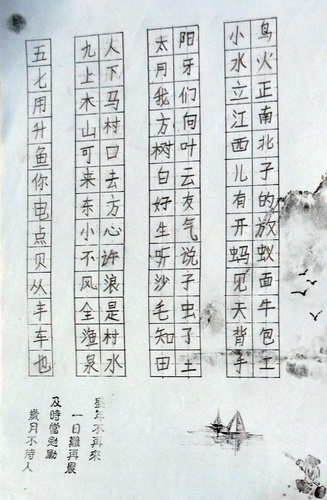 鸟火正南北子的放蚁面牛包工
小水立江西儿有开蚂见天背手
阳牙们向叶云友气说子虫子土
太月我方树白好生听沙毛知田
人下马村口去方心许浪是村水
九上木山可来东小不风全渔泉
五七用升鱼你电点贝从丰车也
盛年不再來
一日難再晨
及時當勉勵
歲月不待人